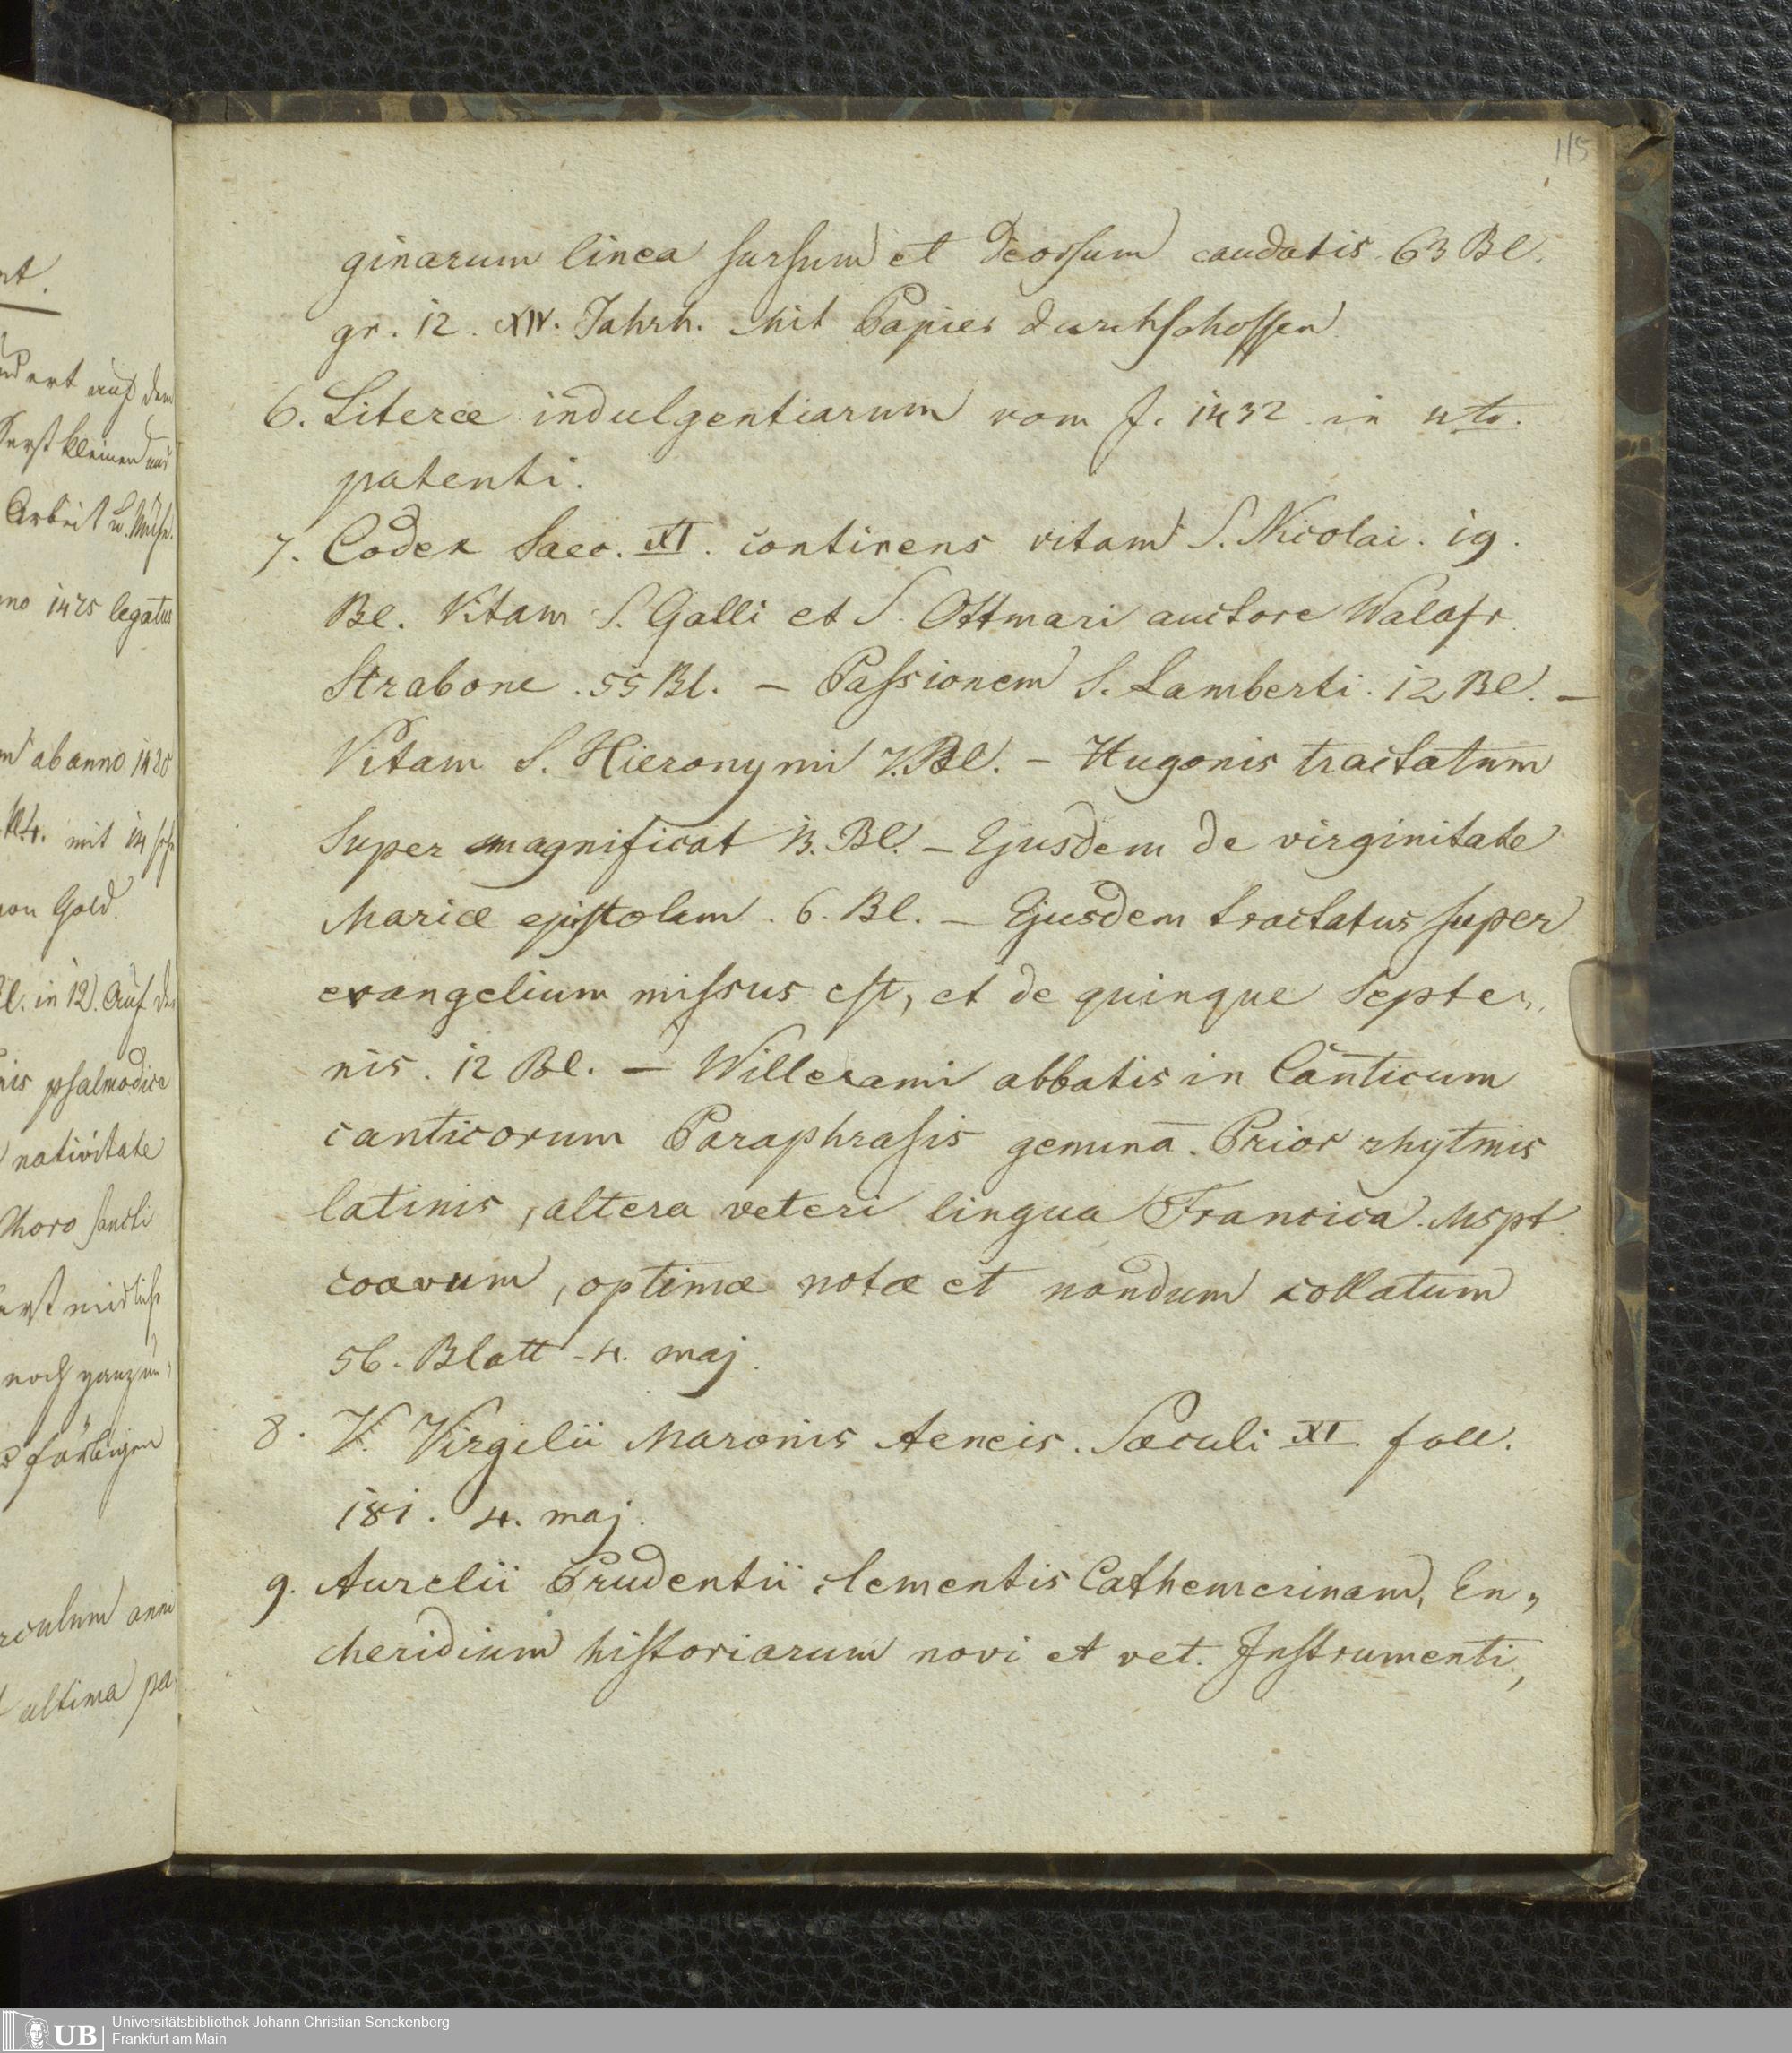 115
ginarum linea sursum et deorsum caudatis. 63 Bl.
gr. 12. XIV. Jahrh. Mit Papier durchschossen
6. Literæ indulgentiarum vom J. 1432 in 4to.
patenti.
7. Codex Saec. XI. continens vitam S. Nicolai. 19.
Bl. Vitam S. Galli et S. Ottmari auctore Walafr.
Strabone. 55 Bl. – Passionem S. Lamberti. 12 Bl. –
Vitam S. Hieronymi 7. Bl. – Hugonis tractatum
super magnificat 13. Bl. – Ejusdem de virginitate
Mariæ epistolam. 6. Bl. – Ejusdem tractatus super
evangelium missus est, et de quinque septe„
nis. 12 Bl. – Willerami abbatis in Canticum
canticorum Paraphrasis gemina. Prior rhytmis
latinis, altera veteri lingua Francica. Mspt.
coævum, optimæ notæ et nondum collatum
56. Blatt - 4. maj.
8. V. Virgilii Maronis Aeneis. Sæculi XI. foll.
181. 4. maj.
9. Aurelii Prudentii Clementis Cathemerinam, En„
cheridium historiarum novi et vet. Instrumenti,
nt.
auf dem
kleinen und
Arbeit u.
1425 legatus
ab anno 1420
mit
von Gold.
Bl. in 12. Auf
psalmodice
nativitate
Choro sancti
noch
ultima pa
UB
Universitätsbibliothek Johann Christian Senckenberg
Frankfurt am Main